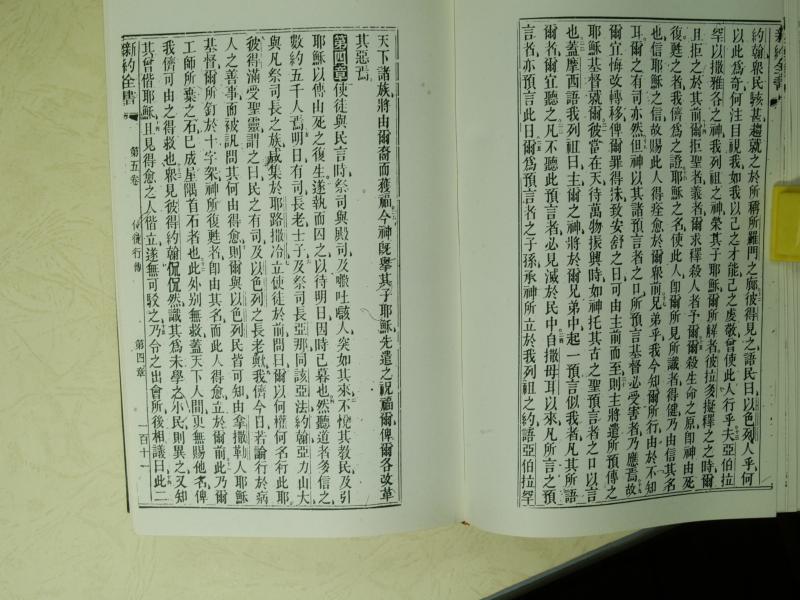 新約全書
約翰衆民駭甚趨就之於所稱所羅門之廊彼得見之語民曰以色列人乎何
以此爲奇何注目視我如我以己之才能己之虔敬曾使此人行乎夫亞伯拉
罕以撒雅各之神我列祖之神榮其子耶穌爾所解者彼拉多擬釋之之時爾
且拒之於其前爾拒聖者義者爾求釋殺人者予爾爾殺生命之原卽神由死
復甦之者我儕爲之證耶穌之名使此人卽爾所見所識者得健乃由信其名
也信耶穌之信故賜此人得痊愈於爾衆前兄弟乎我今知爾所行由於不知
耳爾之有司亦然但神以其諸預言者之口所預言基督必受害者乃應焉故
爾宜悔改轉移俾爾罪得沬致安舒之日可由主前而至則主將遣所預傳之
耶穌基督就爾彼當在天待萬物振興時如神托其古之聖預言者之口以言
也蓋摩西語我列祖曰主爾之神將於爾兄弟中起一預言似我者凡其所語
爾者爾宜聽之凡不聽此預言者必見滅於民中自撒母耳以來凡所言之預
言者亦預言此日爾爲預言者之子孫承神所立於我列祖之約語亞伯拉罕
天下諸族將由爾裔而獲福今神旣擧其子耶穌先遣之祝福爾俾爾各改革
其惡焉
第四章使徒與民言時祭司與殿司及𠾱吐駭人突如其來不悅其敎民及引
耶穌以傳由死之復生遂執而囚之以待明日因時已暮也然聽道者多信之
數約五千人焉明日有司長老士子及祭司長亞那同該亞法約翰亞力山大
與凡祭司長之族咸集於耶路撒冷立使徒於前問曰爾以何權何名行此耶
彼得滿受聖靈謂之曰民之有司及以色列之長老歟我儕今日若諭行於病
人之善事面被訊問其何由得愈則爾與以色列民皆可知由拿撒勒人耶穌
基督爾所釘於十字架神所復甦者卽由其名而此人得愈立於爾前此乃爾
工師所棄之石已成屋隅首石者也此外别無救蓋天下人間更無賜他名俾
我儕可由之得救也衆見彼得約翰侃侃然識其爲未學之小民則異之又知
其曾偕耶穌且見得愈之人偕立遂無可駁之乃令之出會所後相議曰此二
新約全書
第五卷
使徒行傳
第四章
一百十一